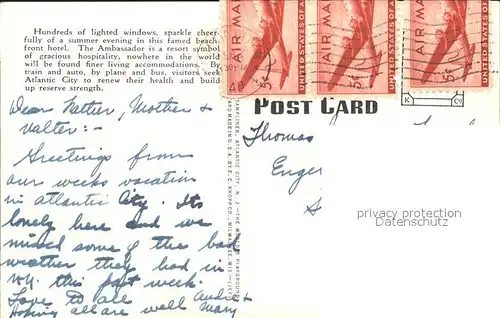 Hundreds of lighted windows, sparkle cheer-
fully of a summer evening in this famed beach-
front hotel. The Ambassador is a resort symbol
of gracious hospitality, nowhere in the world
will be found finer living accommodations. By
train and auto, by plane and bus, visitors seek
Atlantic City to renew their health and build
up reserve strength.
AIR MAIL
5¢
UNITED STATES OF A
AIR MAIL
5¢
UNITED STATES OF A
AIR MAIL
5¢
UNITED STATES OF A
POST CARD
K Co
Dear Father, Mother &
Walter:-
Greetings from
our weeks vacation
in atlantic City. Its
lonely here and we
missed some of the bad
weather they had in
N.Y. this past week.
Love to all
Hoping all are well
Andy &
Mary
Thomas
Enger
privacy protection
Datenschutz